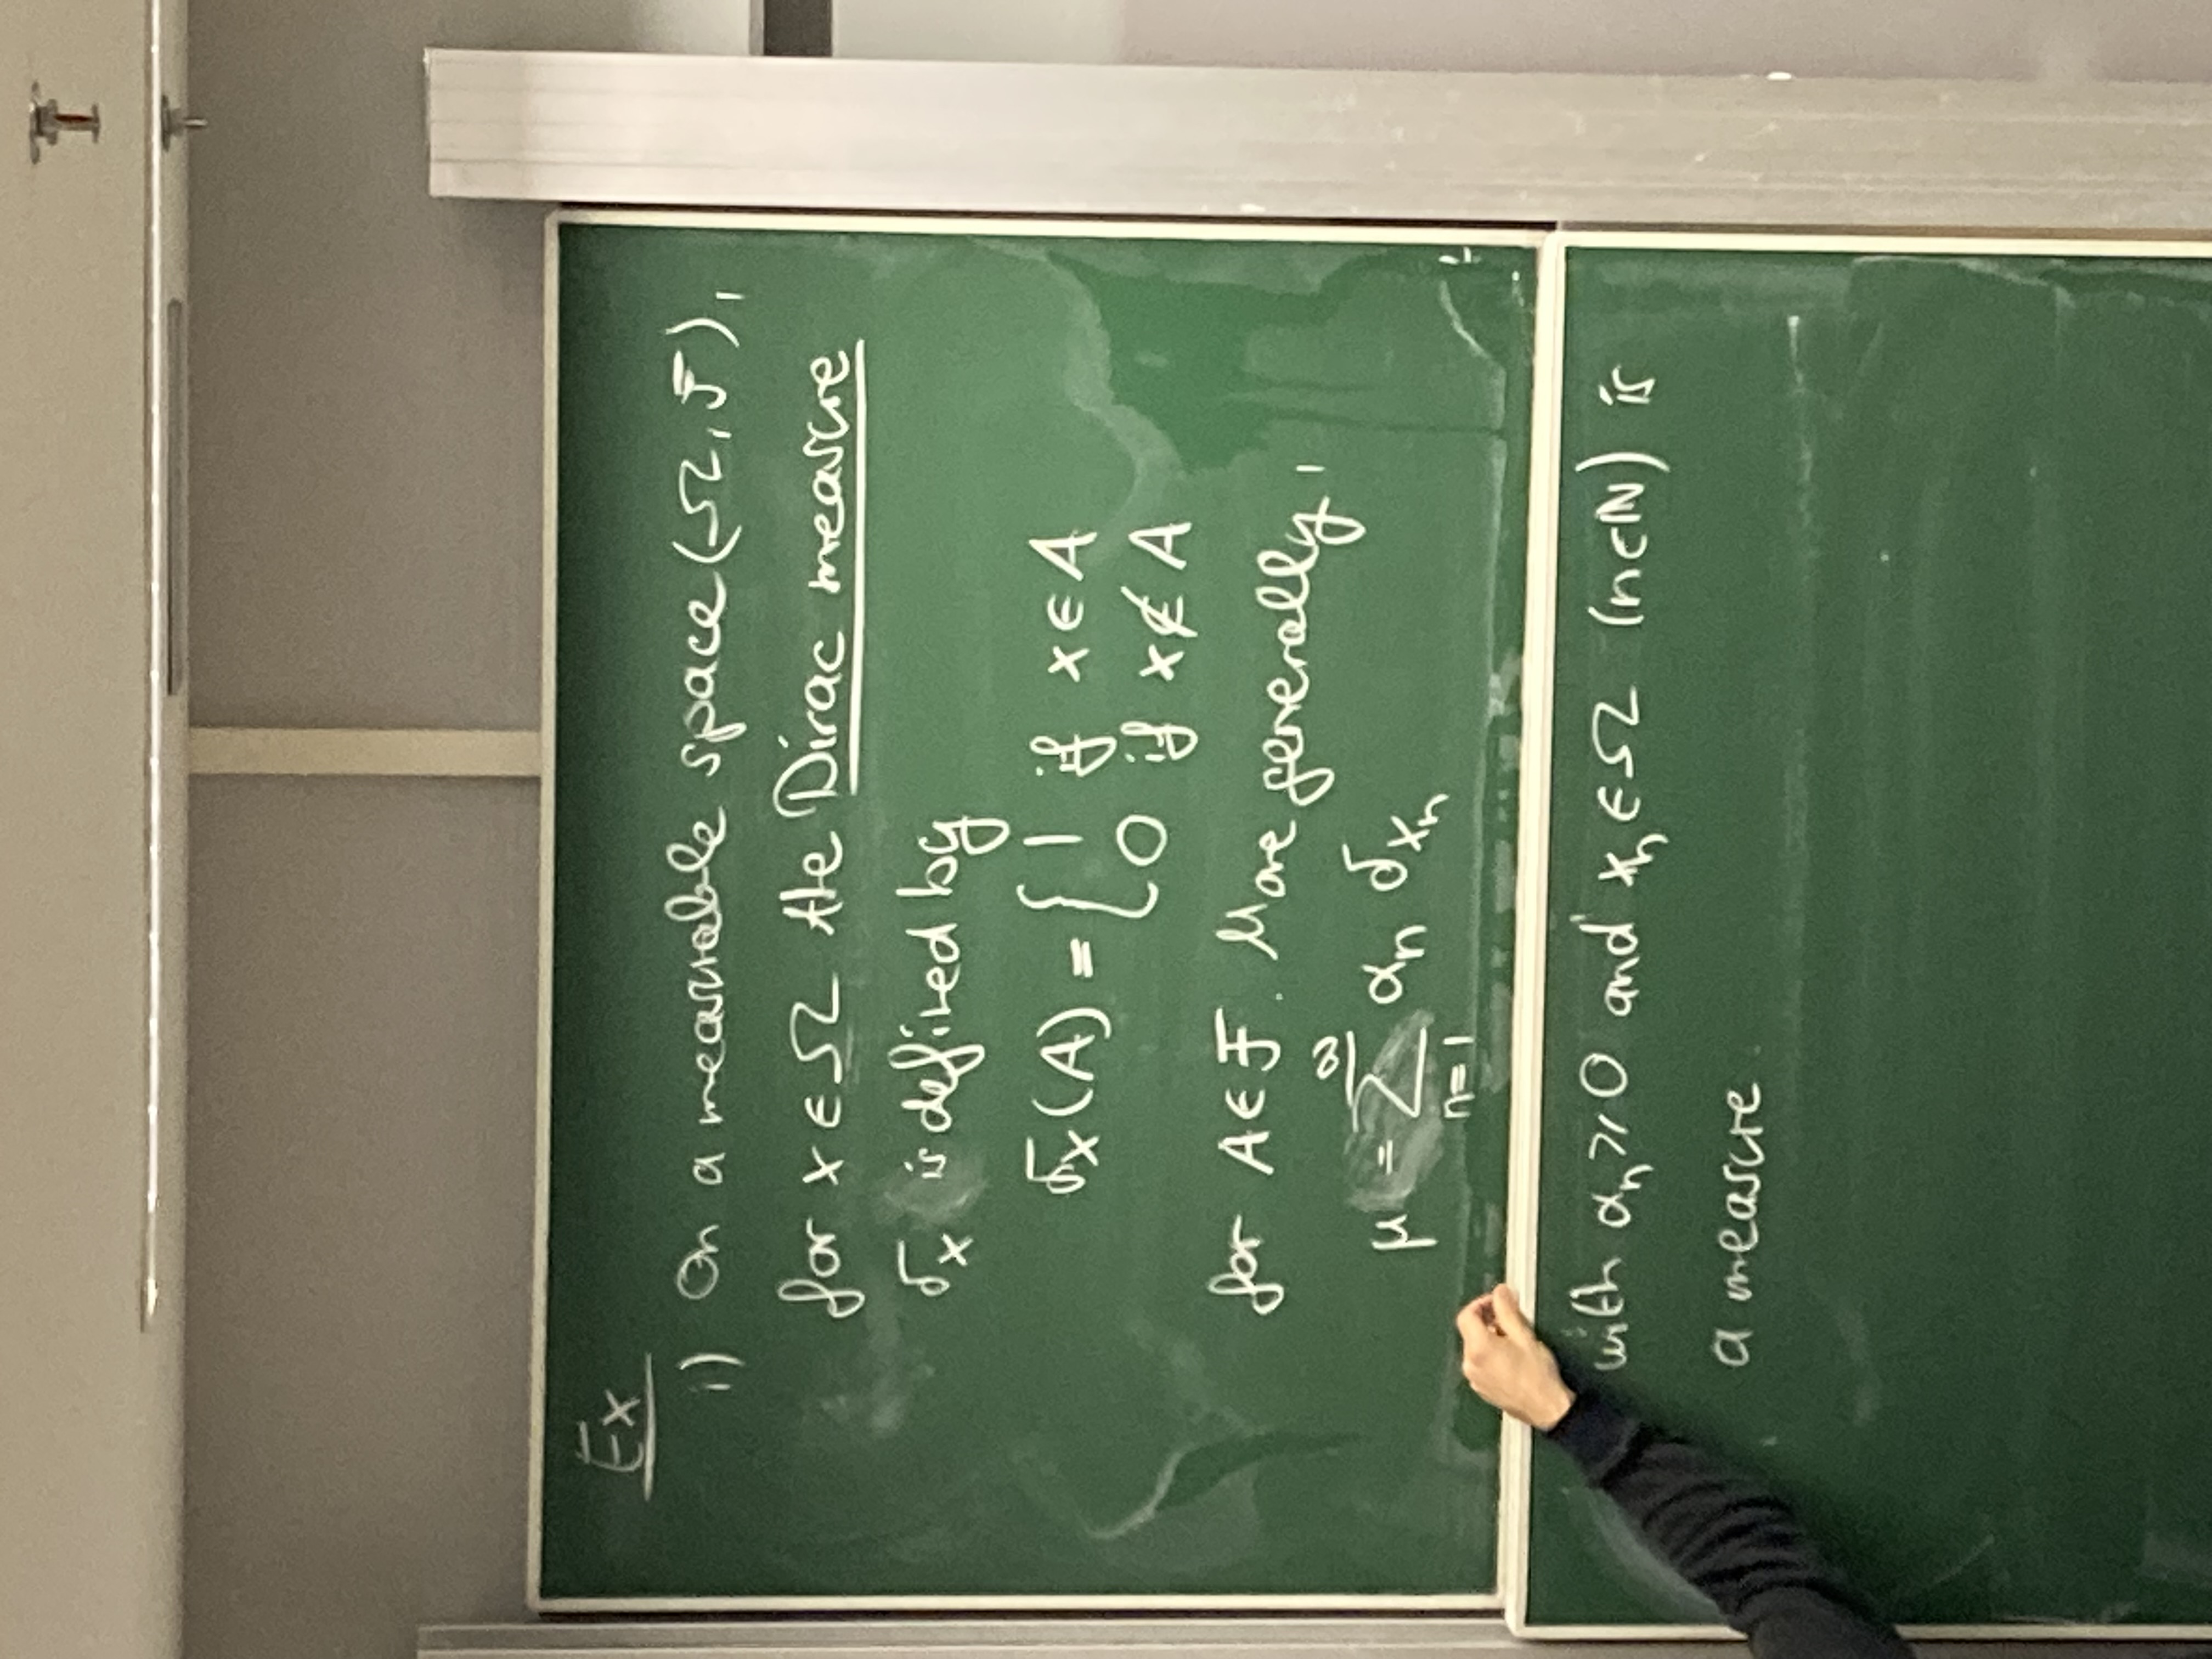 Ex
i) On a measurable space (Ω, F),
for x ∈ Ω the Dirac measure
δₓ is defined by
δₓ(A) = { 1 if x ∈ A
0 if x ∉ A
for A ∈ F. More generally,
μ = ∑_{n=1}^{∞} αₙ δ_{xₙ}
with αₙ ≥ 0 and xₙ ∈ Ω (n ∈ ℕ) is
a measure.